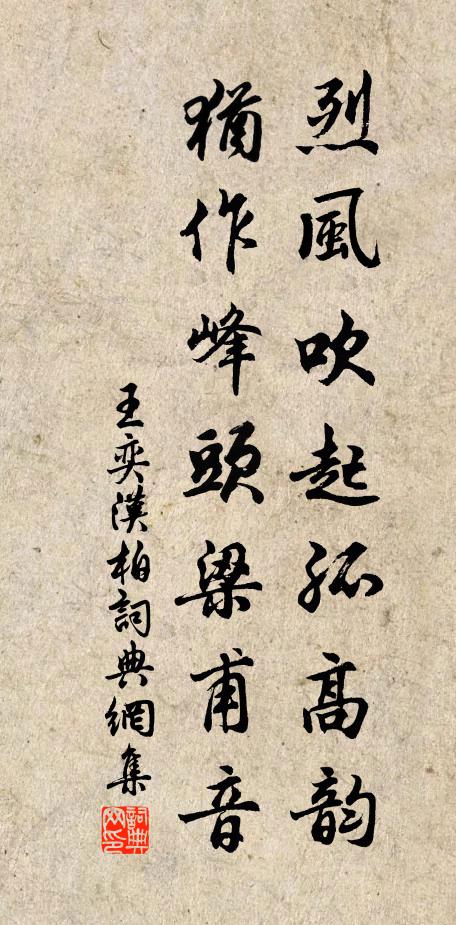 烈風吹起孤高韵
猶作峰頭梁甫音
王奕漢柏詞典網集
詞典网印